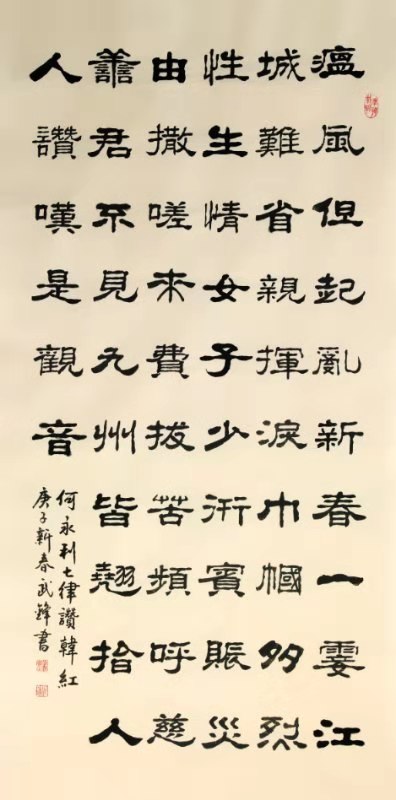 瘟風但起亂新春一霎江
城難省親揮淚巾幗多烈
性生情女子少衎賓賑災
由撒嗟來費拔苦頻呼慈
譱君不見九州皆翹指人
人讚嘆是觀音
何永利七律讚韓紅
庚子新春武鋒書